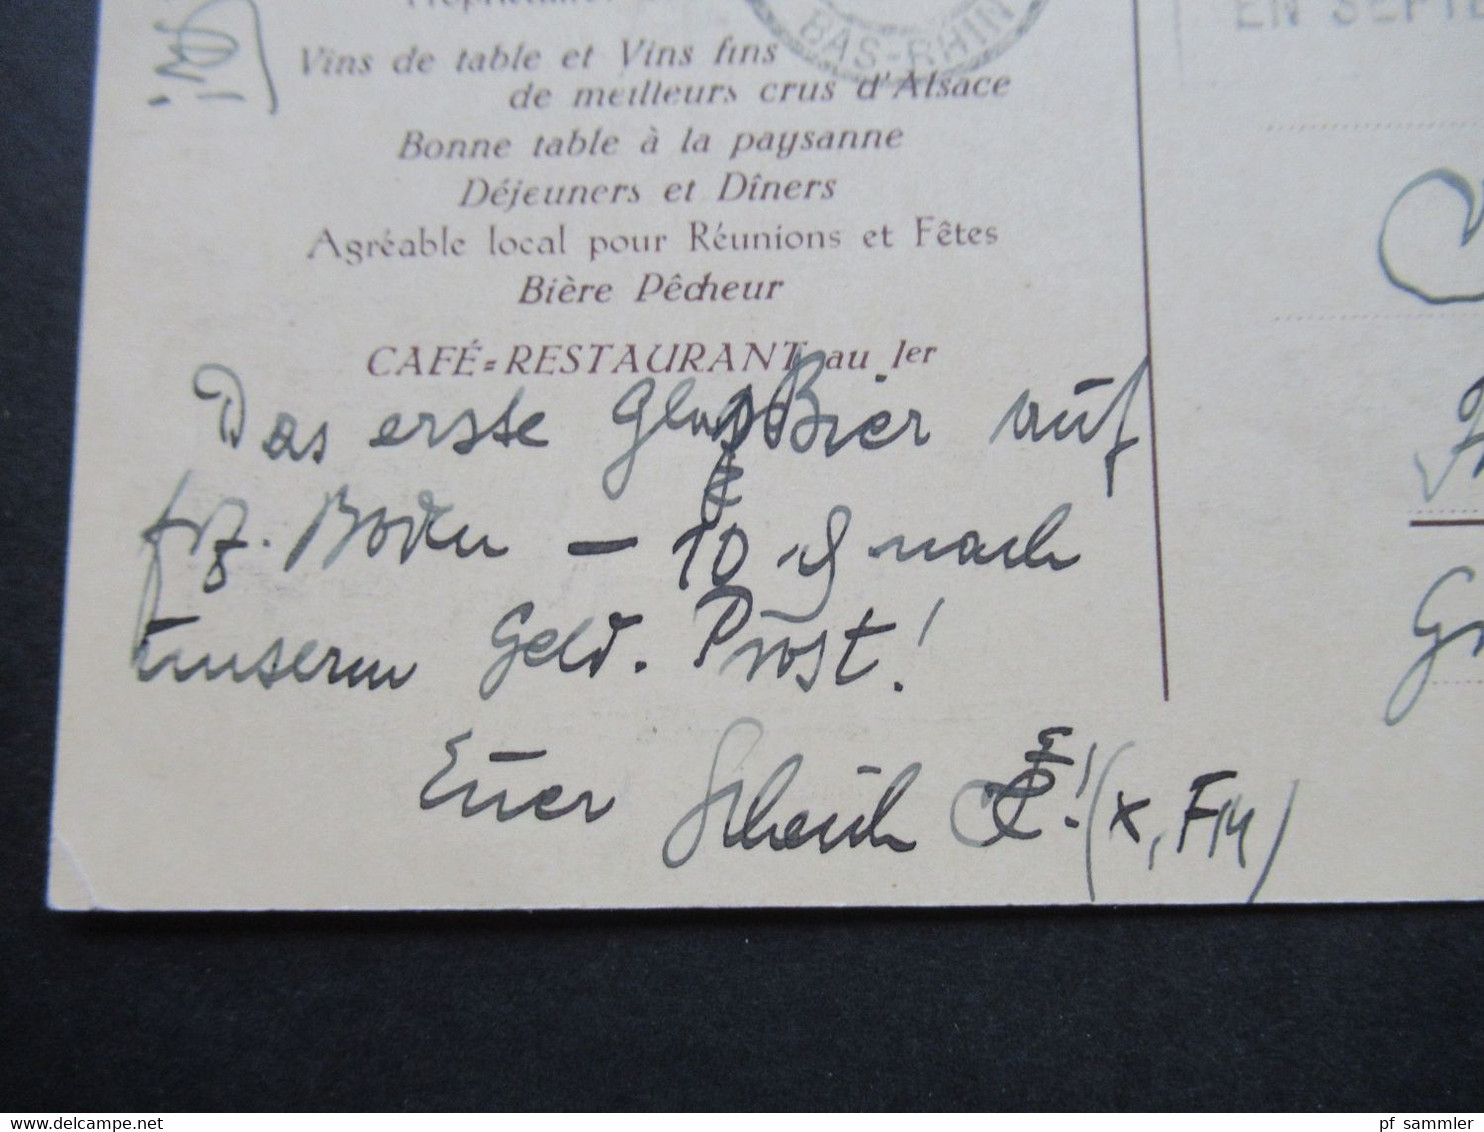 BAS-RHIN
EN SEPT
Vins de table et Vins fins
de meilleurs crus d'Alsace
Bonne table à la paysanne
Déjeuners et Dîners
Agréable local pour Réunions et Fêtes
Bière Pêcheur
CAFÉ=RESTAURANT au 1er
Das erste Glas Bier auf
frz. Boden — 10 ₰ nach
unserm Geld. Prost!
Euer
pf sammler